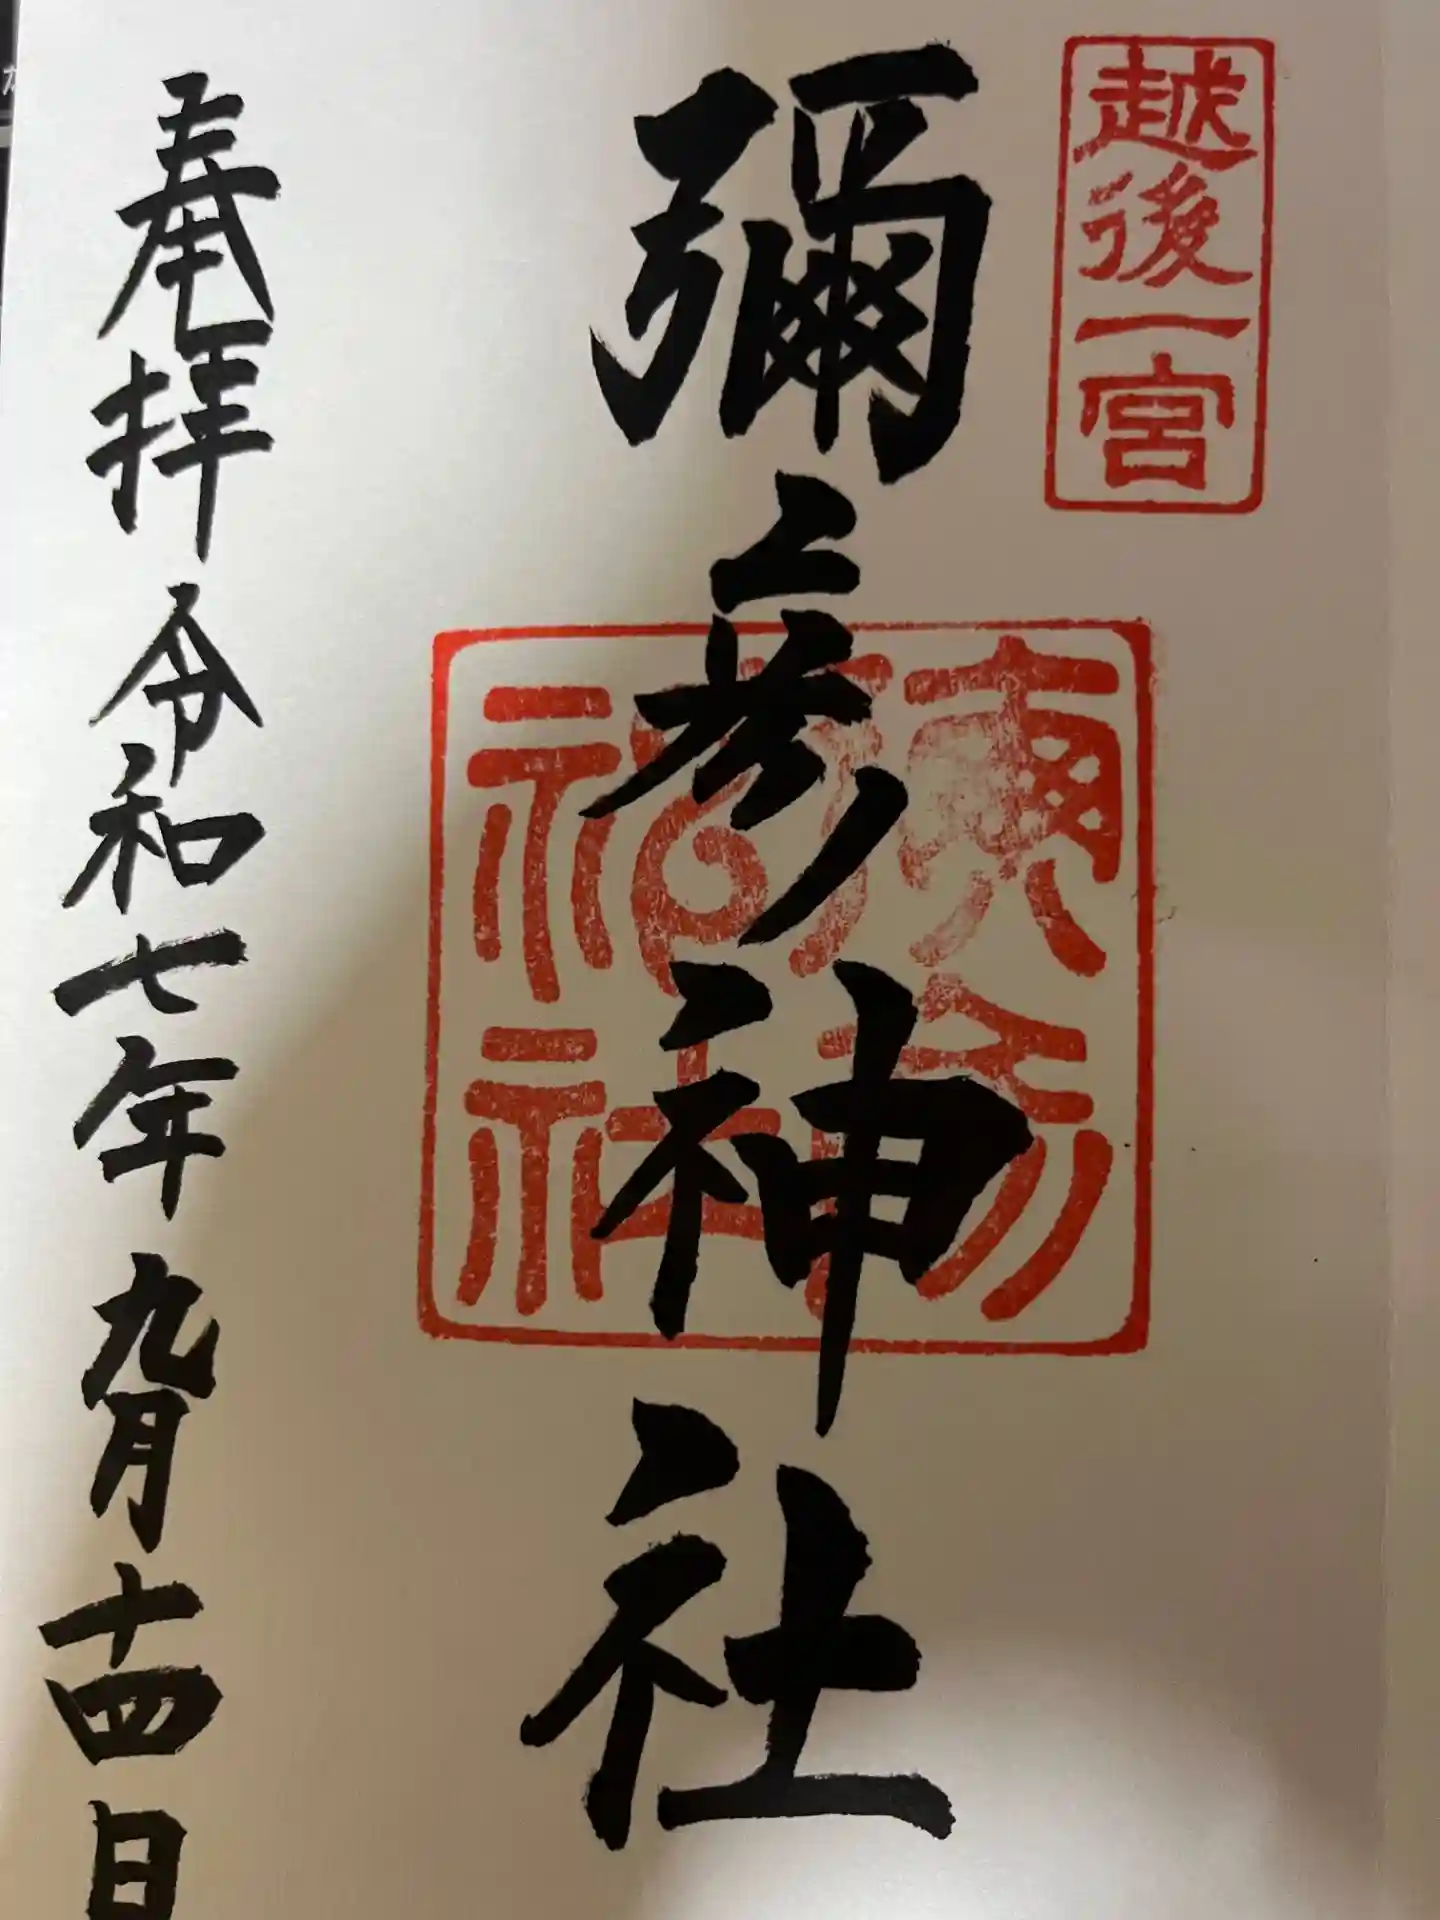 越後一宮
彌彦神社
奉拝 令和七年 九月十四日